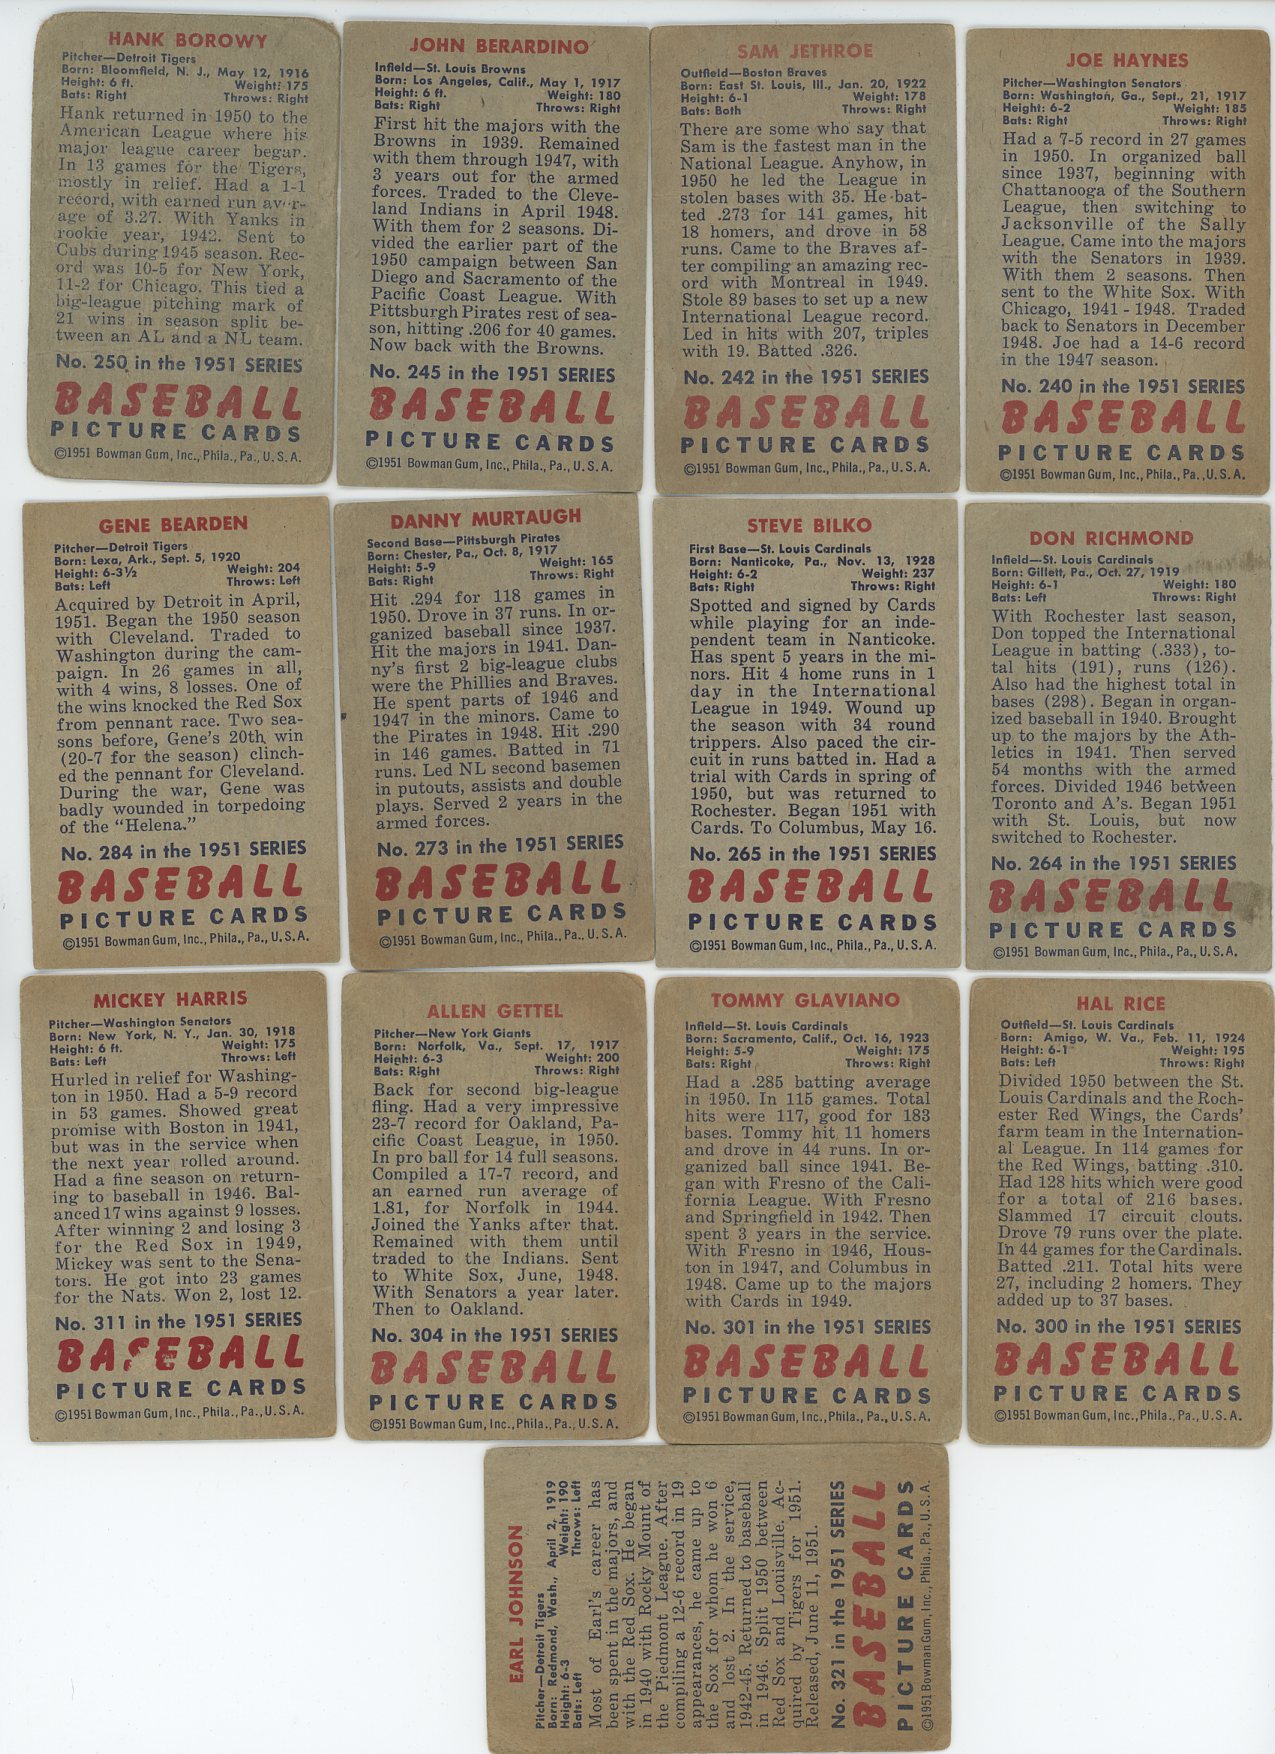 HANK BOROWY
Pitcher—Detroit Tigers
Born: Bloomfield, N. J., May 12, 1916
Height: 6 ft. Weight: 175
Bats: Right Throws: Right
Hank returned in 1950 to the
American League where his
major league career began.
In 13 games for the Tigers,
mostly in relief. Had a 1-1
record, with earned run aver-
age of 3.27. With Yanks in
rookie year, 1942. Sent to
Cubs during 1945 season. Rec-
ord was 10-5 for New York,
11-2 for Chicago. This tied a
big-league pitching mark of
21 wins in season split be-
tween an AL and a NL team.
No. 250 in the 1951 SERIES
BASEBALL
PICTURE CARDS
©1951 Bowman Gum, Inc., Phila., Pa., U.S.A.
JOHN BERARDINO
Infield—St. Louis Browns
Born: Los Angeles, Calif., May 1, 1917
Height: 6 ft. Weight: 180
Bats: Right Throws: Right
First hit the majors with the
Browns in 1939. Remained
with them through 1947, with
3 years out for the armed
forces. Traded to the Cleve-
land Indians in April 1948.
With them for 2 seasons. Di-
vided the earlier part of the
1950 campaign between San
Diego and Sacramento of the
Pacific Coast League. With
Pittsburgh Pirates rest of sea-
son, hitting .206 for 40 games.
Now back with the Browns.
No. 245 in the 1951 SERIES
BASEBALL
PICTURE CARDS
©1951 Bowman Gum, Inc., Phila., Pa., U.S.A.
SAM JETHROE
Outfield—Boston Braves
Born: East St. Louis, Ill., Jan. 20, 1922
Height: 6-1 Weight: 178
Bats: Both Throws: Right
There are some who say that
Sam is the fastest man in the
National League. Anyhow, in
1950 he led the League in
stolen bases with 35. He bat-
ted .273 for 141 games, hit
18 homers, and drove in 58
runs. Came to the Braves af-
ter compiling an amazing rec-
ord with Montreal in 1949.
Stole 89 bases to set up a new
International League record.
Led in hits with 207, triples
with 19. Batted .326.
No. 242 in the 1951 SERIES
BASEBALL
PICTURE CARDS
©1951 Bowman Gum, Inc., Phila., Pa., U.S.A.
JOE HAYNES
Pitcher—Washington Senators
Born: Washington, Ga., Sept., 21, 1917
Height: 6-2 Weight: 185
Bats: Right Throws: Right
Had a 7-5 record in 27 games
in 1950. In organized ball
since 1937, beginning with
Chattanooga of the Southern
League, then switching to
Jacksonville of the Sally
League. Came into the majors
with the Senators in 1939.
With them 2 seasons. Then
sent to the White Sox. With
Chicago, 1941 - 1948. Traded
back to Senators in December
1948. Joe had a 14-6 record
in the 1947 season.
No. 240 in the 1951 SERIES
BASEBALL
PICTURE CARDS
©1951 Bowman Gum, Inc., Phila., Pa., U.S.A.
GENE BEARDEN
Pitcher—Detroit Tigers
Born: Lexa, Ark., Sept. 5, 1920
Height: 6-3½ Weight: 204
Bats: Left Throws: Left
Acquired by Detroit in April,
1951. Began the 1950 season
with Cleveland. Traded to
Washington during the cam-
paign. In 26 games in all,
with 4 wins, 8 losses. One of
the wins knocked the Red Sox
from pennant race. Two sea-
sons before, Gene's 20th win
(20-7 for the season) clinch-
ed the pennant for Cleveland.
During the war, Gene was
badly wounded in torpedoing
of the "Helena."
No. 284 in the 1951 SERIES
BASEBALL
PICTURE CARDS
©1951 Bowman Gum, Inc., Phila., Pa., U.S.A.
DANNY MURTAUGH
Second Base—Pittsburgh Pirates
Born: Chester, Pa., Oct. 8, 1917
Height: 5-9 Weight: 165
Bats: Right Throws: Right
Hit .294 for 118 games in
1950. Drove in 37 runs. In or-
ganized baseball since 1937.
Hit the majors in 1941. Dan-
ny's first 2 big-league clubs
were the Phillies and Braves.
He spent parts of 1946 and
1947 in the minors. Came to
the Pirates in 1948. Hit .290
in 146 games. Batted in 71
runs. Led NL second basemen
in putouts, assists and double
plays. Served 2 years in the
armed forces.
No. 273 in the 1951 SERIES
BASEBALL
PICTURE CARDS
©1951 Bowman Gum, Inc., Phila., Pa., U.S.A.
STEVE BILKO
First Base—St. Louis Cardinals
Born: Nanticoke, Pa., Nov. 13, 1928
Height: 6-2 Weight: 237
Bats: Right Throws: Right
Spotted and signed by Cards
while playing for an inde-
pendent team in Nanticoke.
Has spent 5 years in the mi-
nors. Hit 4 home runs in 1
day in the International
League in 1949. Wound up
the season with 34 round
trippers. Also paced the cir-
cuit in runs batted in. Had a
trial with Cards in spring of
1950, but was returned to
Rochester. Began 1951 with
Cards. To Columbus, May 16.
No. 265 in the 1951 SERIES
BASEBALL
PICTURE CARDS
©1951 Bowman Gum, Inc., Phila., Pa., U.S.A.
DON RICHMOND
Infield—St. Louis Cardinals
Born: Gillett, Pa., Oct. 27, 1919
Height: 6-1 Weight: 180
Bats: Left Throws: Right
With Rochester last season,
Don topped the International
League in batting (.333), to-
tal hits (191), runs (126).
Also had the highest total in
bases (298). Began in organ-
ized baseball in 1940. Brought
up to the majors by the Ath-
letics in 1941. Then served
54 months with the armed
forces. Divided 1946 between
Toronto and A's. Began 1951
with St. Louis, but now
switched to Rochester.
No. 264 in the 1951 SERIES
BASEBALL
PICTURE CARDS
©1951 Bowman Gum, Inc., Phila., Pa., U.S.A.
MICKEY HARRIS
Pitcher—Washington Senators
Born: New York, N. Y., Jan. 30, 1918
Height: 6 ft. Weight: 175
Bats: Left Throws: Left
Hurled in relief for Washing-
ton in 1950. Had a 5-9 record
in 53 games. Showed great
promise with Boston in 1941,
but was in the service when
the next year rolled around.
Had a fine season on return-
ing to baseball in 1946. Bal-
anced 17 wins against 9 losses.
After winning 2 and losing 3
for the Red Sox in 1949,
Mickey was sent to the Sena-
tors. He got into 23 games
for the Nats. Won 2, lost 12.
No. 311 in the 1951 SERIES
BASEBALL
PICTURE CARDS
©1951 Bowman Gum, Inc., Phila., Pa., U.S.A.
ALLEN GETTEL
Pitcher—New York Giants
Born: Norfolk, Va., Sept. 17, 1917
Height: 6-3 Weight: 200
Bats: Right Throws: Right
Back for second big-league
fling. Had a very impressive
23-7 record for Oakland, Pa-
cific Coast League, in 1950.
In pro ball for 14 full seasons.
Compiled a 17-7 record, and
an earned run average of
1.81, for Norfolk in 1944.
Joined the Yanks after that.
Remained with them until
traded to the Indians. Sent
to White Sox, June, 1948.
With Senators a year later.
Then to Oakland.
No. 304 in the 1951 SERIES
BASEBALL
PICTURE CARDS
©1951 Bowman Gum, Inc., Phila., Pa., U.S.A.
TOMMY GLAVIANO
Infield—St. Louis Cardinals
Born: Sacramento, Calif., Oct. 16, 1923
Height: 5-9 Weight: 175
Bats: Right Throws: Right
Had a .285 batting average
in 1950. In 115 games. Total
hits were 117, good for 183
bases. Tommy hit 11 homers
and drove in 44 runs. In or-
ganized ball since 1941. Be-
gan with Fresno of the Cali-
fornia League. With Fresno
and Springfield in 1942. Then
spent 3 years in the service.
With Fresno in 1946, Hous-
ton in 1947, and Columbus in
1948. Came up to the majors
with Cards in 1949.
No. 301 in the 1951 SERIES
BASEBALL
PICTURE CARDS
©1951 Bowman Gum, Inc., Phila., Pa., U.S.A.
HAL RICE
Outfield—St. Louis Cardinals
Born: Amigo, W. Va., Feb. 11, 1924
Height: 6-1 Weight: 195
Bats: Left Throws: Right
Divided 1950 between the St.
Louis Cardinals and the Roch-
ester Red Wings, the Cards'
farm team in the Internation-
al League. In 114 games for
the Red Wings, batting .310.
Had 128 hits which were good
for a total of 216 bases.
Slammed 17 circuit clouts.
Drove 79 runs over the plate.
In 44 games for the Cardinals.
Batted .211. Total hits were
27, including 2 homers. They
added up to 37 bases.
No. 300 in the 1951 SERIES
BASEBALL
PICTURE CARDS
©1951 Bowman Gum, Inc., Phila., Pa., U.S.A.
EARL JOHNSON
Pitcher—Detroit Tigers
Born: Redmond, Wash., April 2, 1919
Height: 6-3 Weight: 190
Bats: Left Throws: Left
Most of Earl's career has
been spent in the majors, and
with the Red Sox. He began
in 1940 with Rocky Mount of
the Piedmont League. After
compiling a 12-6 record in 19
appearances, he came up to
the Sox for whom he won 6
and lost 2. In the service,
1942-45. Returned to baseball
in 1946. Split 1950 between
Red Sox and Louisville. Ac-
quired by Tigers for 1951.
Released, June 11, 1951.
No. 321 in the 1951 SERIES
BASEBALL
PICTURE CARDS
©1951 Bowman Gum, Inc., Phila., Pa., U.S.A.